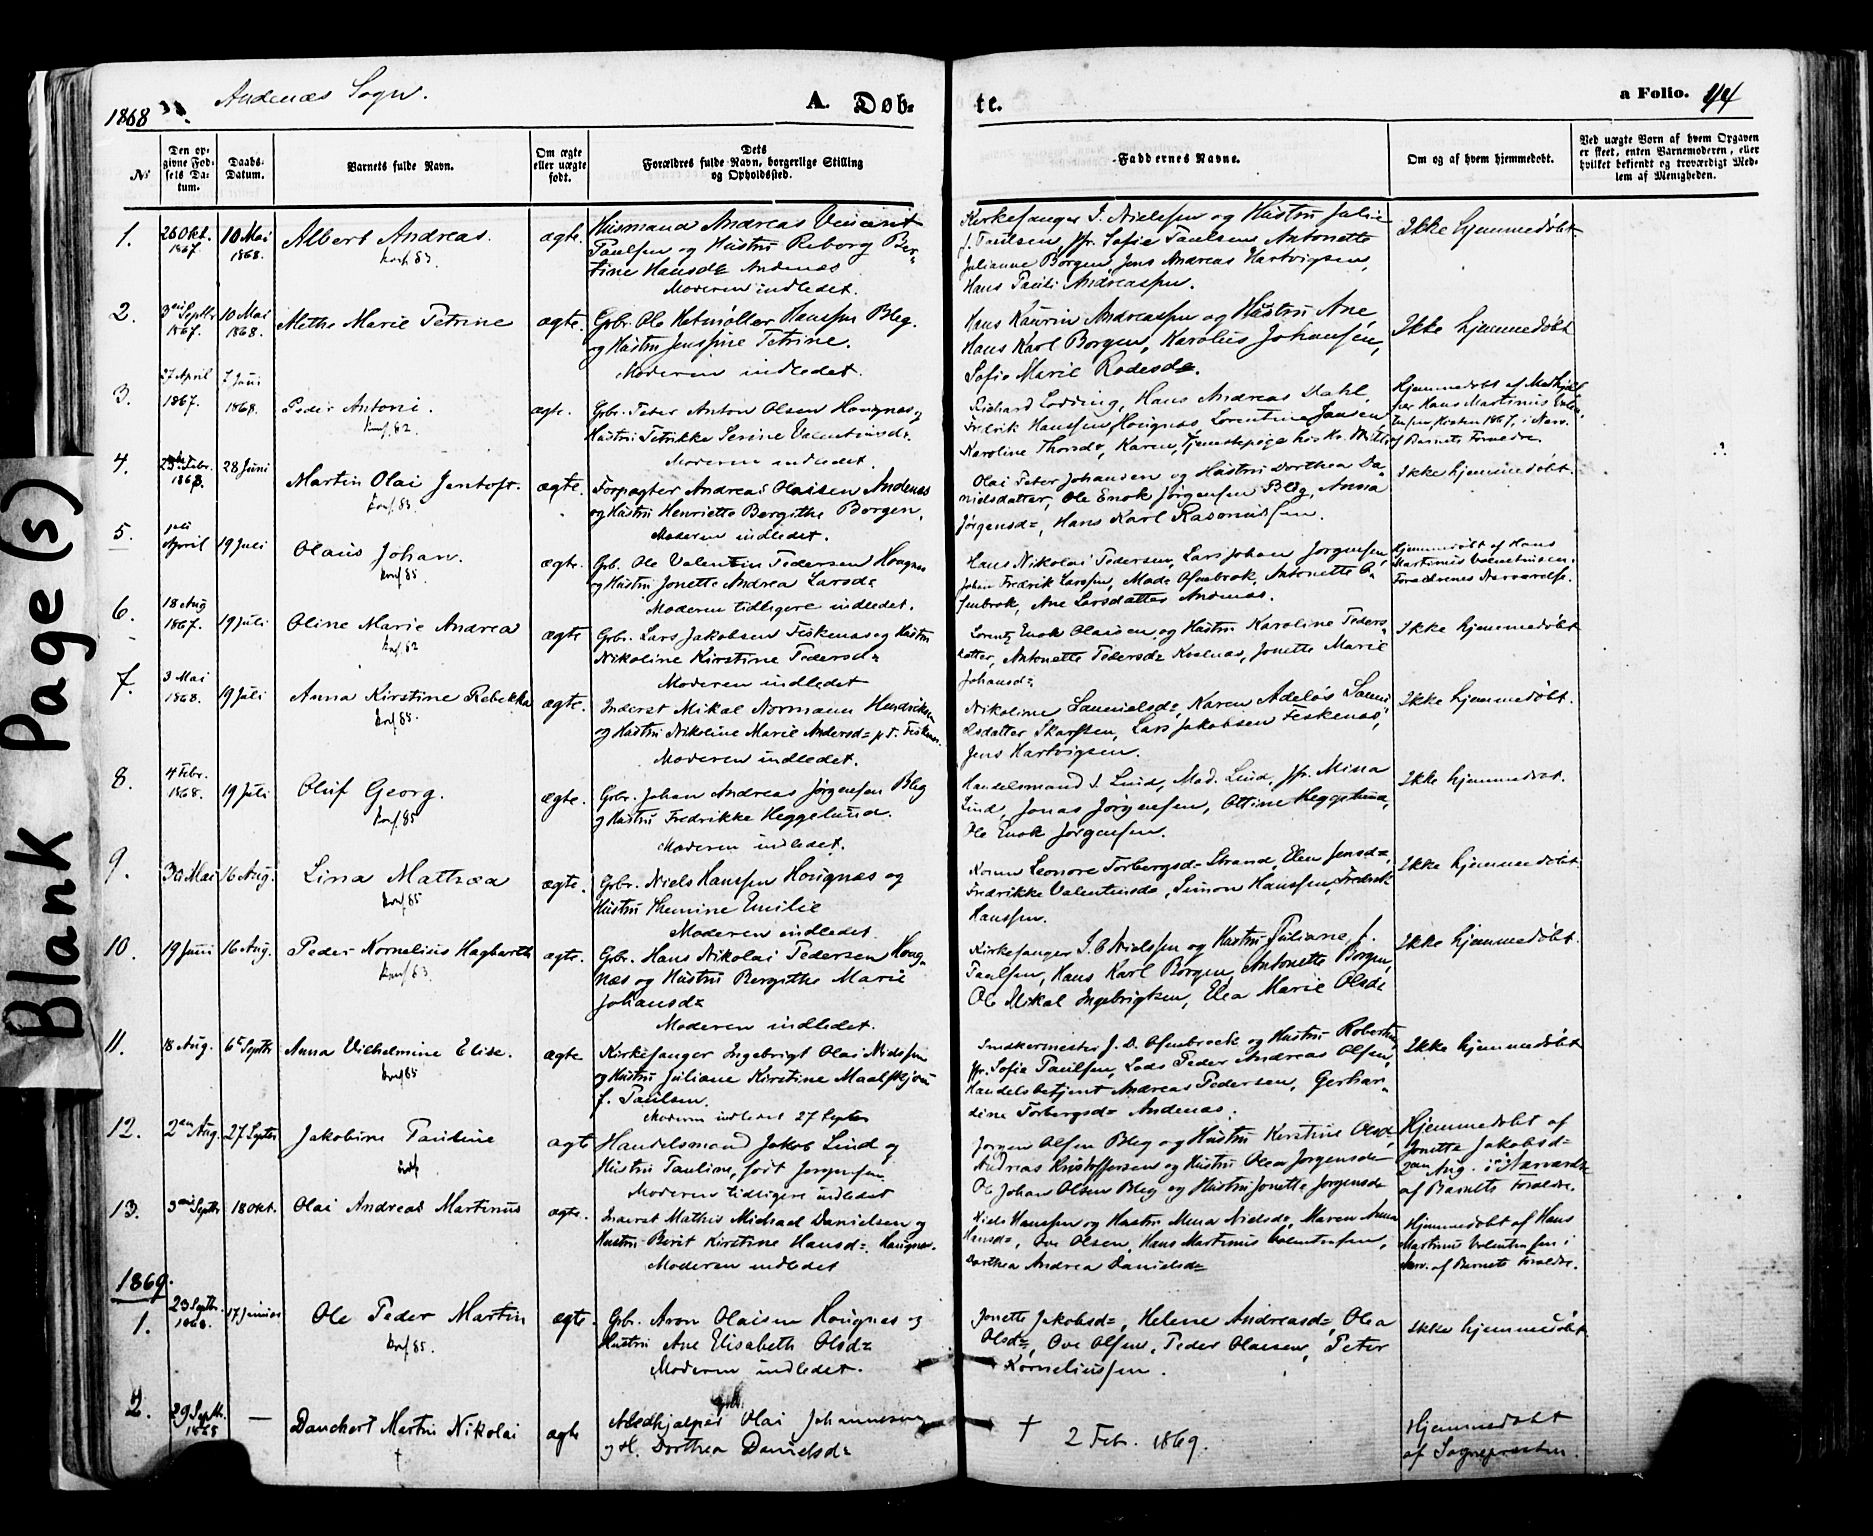 Andenæs Sogn.
1868
A. Døb-
te.
a Folio. 44
No
Den opgivne Fødsels Datum.
Daabs-Datum.
Barnets fulde Navn.
Om ægte eller uægte født.
Dets Forældres fulde Navn, borgerlige Stilling og Opholdssted.
Faddernes Navne.
Om og af hvem hjemmedøbt.
Ved uægte Børn af hvem Opgaven er skeet, enten Barnemoderen, eller hvilket bekjendt og troværdigt Medlem af Menigheden.
1. 26 Okt. 1867. 10 Mai 1868. Albert Andreas. Konf. 83. ægte.
Husmand Andreas
Paulsen og Hustru Reborg Ber-
tine Hansd= Andenæs
Moderen indledet.
Kirkesanger I. Nielsen og Hustru Julie
f. Paulsen, Jfr. Sofie Paulsen, Antonette
Julianne Borgen, Jens Andreas Hartvigsen,
Hans Pauli Andreassen.
Ikke hjemmedøbt.
2. 3die Septbr 1867. 10 Mai 1868. Methe Marie Petrine ægte.
Gbr. Ole Hans​sen Bleg.
og Hustru Jenssine Petrine.
Moderen indledet.
Hans Kaurin Andreassen og Hustru Ane,
Hans Karl Borgen, Karolus Johansen,
Sofie Marie
Ikke hjemmedøbt
3. 27 April 1867. 7 Juni 1868. Peder Antoni. Konf. 82. ægte.
Gbr. Peter Anton Olsen Haugnæs og
Hustru Petrikke Serine Valentinsd=
Moderen indledet.
Richard Lodding, Hans Andreas Dahl,
Fredrik Hanssen Haugnæs, Lorentine Jansen,
Karoline Thorsd=, Karen, Tjenestepige hos
Hjemmedøbt af
Hans Martinus
Høsten 1867, i Nærv.
af Barnets Forældre.
4. Febr. 1868. 28 Juni Martin Olai Jentoft. Konf. 83. ægte.
Forpagter Andreas Olaisen Andenæs
og Hustru Henriette Bergithe Borgen.
Moderen indledet.
Olai Peter Johansen og Hustru Dorthea Da-
nielsdatter, Ole Enok Jørgensen Bleg, Anna
Jørgensd=, Hans Karl Rasmussen.
Ikke hjemmedøbt.
5. 1ste April 19 Juli Olaus Johan. Konf. 85. ægte.
Gbr. Ole Valentin Pedersen Haugnæs
og Hustru Jonette Andrea Larsd=
Moderen tidligere indledet.
Hans Nikolai Pedersen, Lars Johan Jørgensen,
Johan Fredrik Larssen, Mads Ofenbrok, Antonette O-
fenbrok, Ane Larsdatter Andenæs.
Hjemmedøbt af Hans
Martinus Valentinsen.
Forældrenes Nærværelse.
6. 18 Aug 1867. 19 Juli Oline Marie Andrea Konf. 82 ægte
Gbr. Lars Jakobsen Fiskenæs og Hustru
Nikoline Kirstine Pedersd=
Moderen indledet
Lorentz Enok Olausen og Hustru Karoline Peders-
datter, Antonette Pedersd= Jonette Marie
Johansd=
Ikke hjemmedøbt
7. 3 Mai 1868. 19 Juli Anna Kirstine Rebekka Konf. 85. ægte.
Inderst Mikal Normann Hendriksen
og Hustru Nikoline Marie Andersd= p.t. Fiskenæs.
Moderen indledet.
Nikoline Samuelsd=, Karen Adelos Samu-
elsdatter Skarsten, Lars Jakobsen Fiskenæs,
Jens Hartvigsen.
Ikke hjemmedøbt.
8. 4 Febr. 1868. 19 Juli Oluf Georg. Konf. 85 ægte.
Gbr. Johan Andreas Jørgensen Bleg
og Hustru Fredrikke Heggelund.
Moderen indledet.
Handelsmand I. Lind, Mad. Lind, Jfr. Mina
Lind, Jonas Jørgensen, Ottine Heggelund,
Ole Enok Jørgensen.
Ikke hjemmedøbt.
9. 30 Mai 16 Aug. Lina Mathæa Konf. 85 ægte.
Gbr. Niels Hanssen Haugnæs og
Hustru Emilie
Moderen indledet.
Leonore Torbergsd= Strand, Elen Jensd=,
Fredrikke Valentinsd=, Simon Hanssen, Fredrik
Hanssen.
Ikke hjemmedøbt
10. 19 Juni 16 Aug. Peder Kornelius Hagbarth Konf. 83. ægte.
Gbr. Hans Nikolai Pedersen Haug-
næs og Hustru Bergithe Marie
Johansd=
Moderen indledet.
Kirkesanger I. O Nielsen og Hustru Juliane f.
Paulsen, Hans Karl Borgen, Antonette Borgen,
Ole Mikal Ingebrigtsen, Elea Marie Olsd=
Ikke hjemmedøbt.
11. 18 Aug. 6te Septbr Anna Vilhelmine Elise. Konf 85 ægte
Kirkesanger Ingebrigt Olai Nielsen
og Hustru Juliane Kirstine Maalfrid
f. Paulsen.
Moderen indledet 27 Septbr
Snedkermester J. D. Ofenbrock og Hustru
Jfr. Sofie Paulsen, Lods Peder Andreas Olsen,
Handelsbetjent Andreas Pedersen, Gerhar-
dine Torbergsd= Andenæs.
Ikke hjemmedøbt
12. 2den Aug. 27 Septbr Jakobine Pauline ægte
Handelsmand Jakob Lind og
Hustru Pauline, født Jørgensen
Moderen tidligere indledet
Jørgen Olsen Bleg og Hustru Kerstine Olsd=
Andreas Kristoffersen og Hustru Olea Jørgensd=
Ole Johan Olsen Bleg og Hustru Jonette Jørgensd=
Hjemmedøbt af
Jonette Jakobsd=
2den Aug. i Nærværelse
af Barnets Forældre.
13. 3die Septbr 18 Okt. Olai Andreas Martinus ægte.
Inderst Mathis Michael Danielsen og
Hustru Berit Kirstine Hansd=. Haugnæs.
Moderen indledet
Niels Hanssen og Hustru Mina Nielsd=, Maren Anna
Hansd=, Ove Olsen, Hans Martinus Valentinsen,
Dorthea Andrea Danielsd=
Hjemmedøbt af Hans
Martinus Valentinsen i
Nærv. af Barnets Forældre.
1869.
1. 23 Septbr. 1868. 17 Januar Ole Peder Martin Konf 85. ægte.
Gbr. Aron Olaisen Haugnæs og
Hustru Ane Elisabeth Olsd=
Moderen indledet.
Jonette Jakobsd=, Helene Andreasd=, Olea
Olsd=, Ove Olsen, Peder Olaisen, Peter
Korneliussen.
Ikke hjemmedøbt
2. 29 Septbr. 1868 — Danckert Martin Nikolai † ægte
Medhjælper Olai Johannesen
og H. Dorthea Danielsd=
† 2 Feb. 1869.
Hjemmedøbt
af Sognepresten
Blank Page(s)